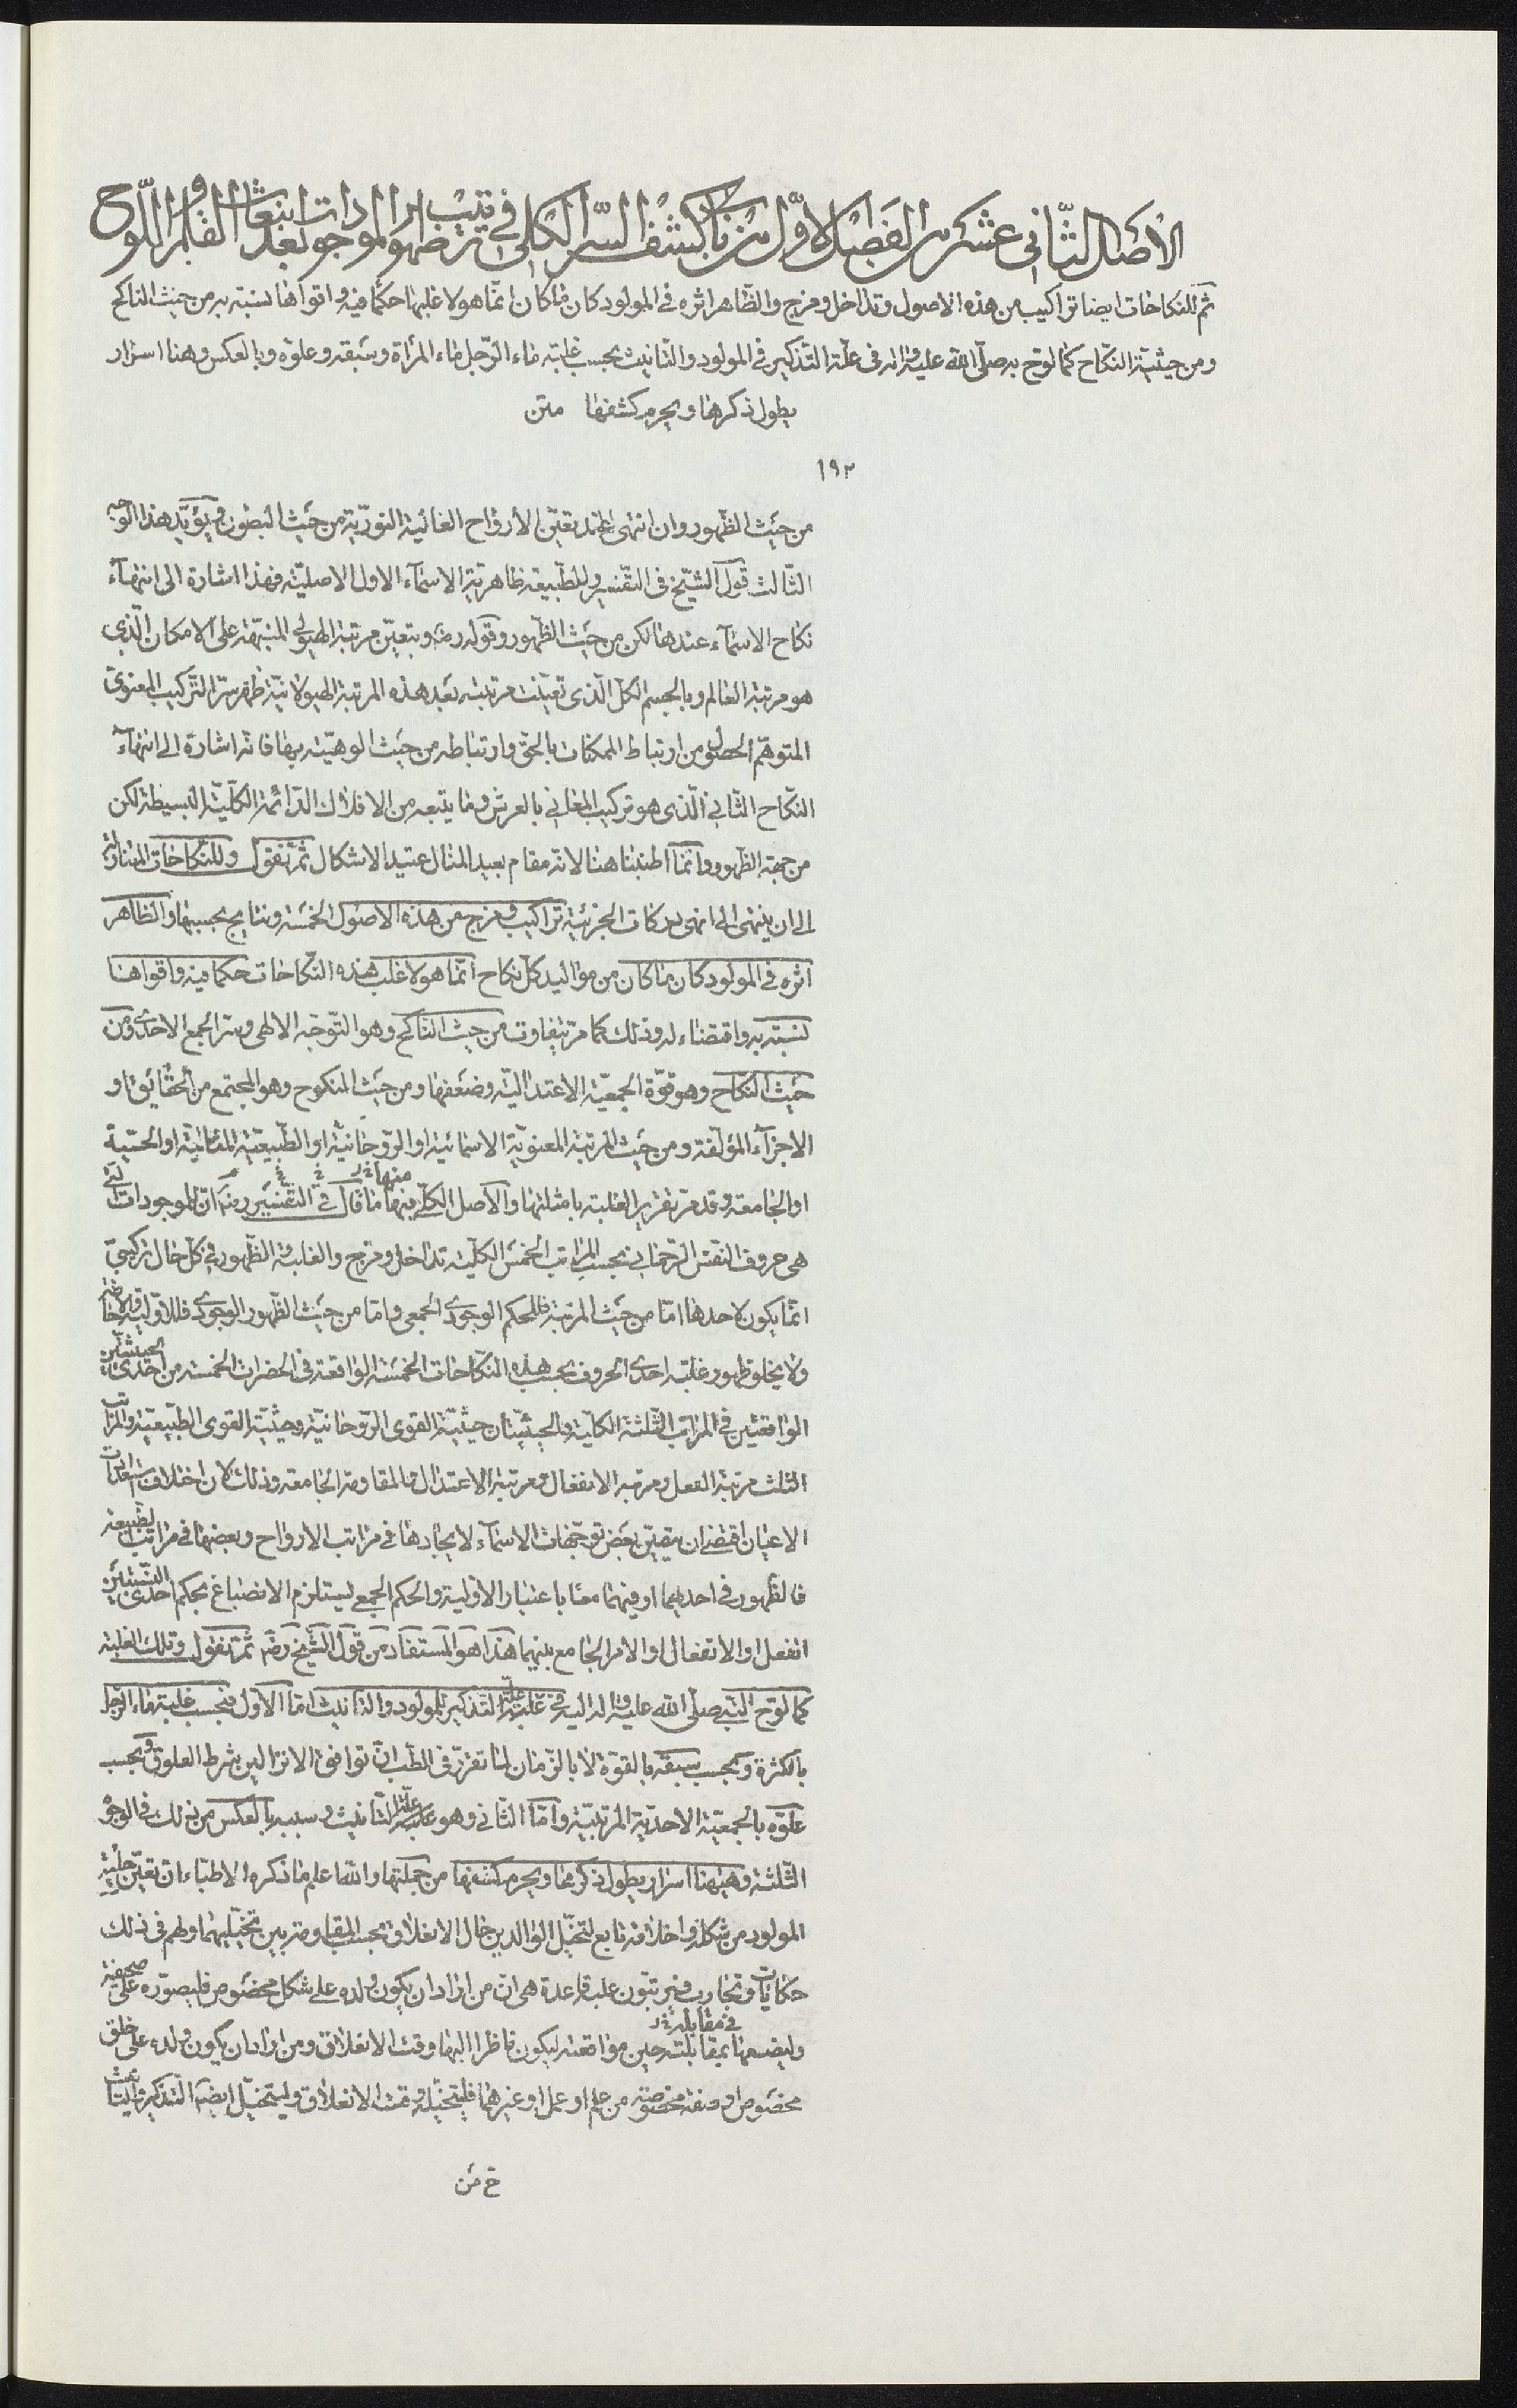 الأصل الثّاني عشر من الفصل الأوّل من باب كشف السّر الكلي في ترتيب ظهور الموجودات بعد انبعاث القلم و اللّوح
ثمّ للنكاحات ايضا تراكيب من هذه الاصول و تداخل و مزج و الظّاهر اثره فى المولود كان ما كان انّما هو لاغلبها حكما فيه و اقواها نسبته به من حيث الناكح
و من حيثيّة النكاح كما لوّح به صلّى الله عليه و اله فى علّة التّذكير فى المولود و التّانيث بحسب غلبة ماء الرّجل ماء المرأة و سبقه و علوّه و بالعكس و هنا اسرار
يطول ذكرها و يحرم كشفها متن
١٩٢
من حيث الظّهور و ان انتهى عند تعيّن الأرواح العالية النوريّة من حيث البطون و يؤيّد هذا الوجه
الثّالث قول الشّيخ فى التّفسير و للطّبيعة ظاهريّة الاسمآء الاول الاصليّة فهذا اشارة الى انتهآء
نكاح الاسمآء عندها لكن من حيث الظّهور و قوله رضه و بتعيّن مرتبة الهيولى المنبّهة على الامكان الّذى
هو مرتبة العالم و بالجسم الكلّ الّذى تعيّنت مرتبته بعد هذه المرتبة الهيولانيّة ظهر سرّ التّركيب المعنوى
المتوهّم الحصول من ارتباط الممكنات بالحقّ و ارتباطه من حيث الوهيّته بها فانّه اشارة الى انتهآء
النّكاح الثّانى الّذى هو تركيب المعانى بالعرش و ما يتبعه من الافلاك الدّائمة الكلّيّة البسيطة لكن
من جهة الظهور و انّما اطنبنا هنا لانّه مقام بعيد المنال عتيد الاشكال ثمّ نقول و للنّكاحات المتنازلة
الى ان ينتهى الى انهى دركات الجزئية تراكيب و مزج من هذه الاصول الخمسة و نتايج بحسبها و الظاهر
اثره فى المولود كان ما كان من مواليد كلّ نكاح انّما هو لاغلب هذه النّكاحات حكما فيه و اقواها
نسبته به و اقتضاء له و ذلك كما مرّ يتفاوت من حيث النّاكح و هو التّوجّه الالهى و سرّ الجمع الاحدى و من
حيث النّكاح و هو قوّة الجمعيّة الاعتداليّه و ضعفها و من حيث المنكوح و هو المجتمع من الحقائق او
الاجزآء المؤلّفة و من حيث المرتبة المعنويّة الاسمائية او الرّوحانيّة او الطّبيعيّة المثاليّة او الحسّية
او الجامعة و قد مرّ تقرير الغلبة بامثلتها و الأصل الكلّى فيها منها خ‌ل ما قال فى التّفسير رضه انّ للموجودات الّتى
هى حروف النّفس الرّحمانى بحسب المراتب الخمس الكلّيّة تداخل و مزج و الغلبة و الظّهور فى كلّ حال تركيبىّ
انّما يكون لاحدها امّا من حيث المرتبة فللحكم الوجودى الجمعى و امّا من حيث الظّهور الوجودى فللاوّلية و الاحاطة
و لا يخلو ظهور غلبة احدى الحروف بحسب هذه النّكاحات الخمسة الواقعة فى الحضرات الخمسة من احدى الحيثيّتين
الواقعتين فى المراتب الثّلثة الكلّيّة و الحيثيّتان حيثيّة القوى الرّوحانيّة و حيثيّة القوى الطّبيعيّة و المراتب
الثلث مرتبة الفعل و مرتبة الانفعال و مرتبة الاعتدال و المقاومة الجامعة و ذلك لان اختلاف استعدادات
الاعيان اقتضى ان يتعيّن بعض توجّهات الاسمآء لايجادها فى مراتب الارواح و بعضها فى مراتب الطّبيعة
فالظّهور فى احديهما او فيهما معا باعتبار الاوّلية و الحكم الجمعى يستلزم الانصباغ بحكم احدى النّسبتين
الفعل او الانفعال او الامر الجامع بينهما هذا هو المستفاد من قول الشّيخ رضه ثمّ نقول و تلك الغلبة
كما لوّح النّبى صلّى الله عليه و اله اليه فى غلبة علّة التذكير للمولود و التّانيث امّا الأوّل فبحسب غلبة ماء الرّجل
بالكثرة و بحسب سبقه بالقوّة لا بالزّمان لما تقرّر فى الطّب انّ توافق الانزالين شرط العلوق و بحسب
علوّه بالجمعيّة الاحديّة المرتبيّة و امّا الثّانى و هو غلبة علّة التّانيث و سببه بالعكس من ذلك فى الوجوه
الثّلثة و هيهنا اسرار يطول ذكرها و يحرم كشفها من جملتها و الله اعلم ما ذكره الاطبّاء انّ تعيّن حلية
المولود من شكله و اخلاقه تابع لتخيّل الوالدين حال الانعلاق بحسب المقاومة بين تخيّليهما و لهم فى ذلك
حكايات و تجارب و يرتّبون عليه قاعدة هى انّ من اراد ان يكون ولده على شكل مخصوص فليصوّره على صحيفة
و ليضعها بمقابلته فى مقابلته خ‌ل حين مواقعته ليكون ناظرا اليها وقت الانعلاق و من اراد ان يكون ولده على خلق
مخصوص او صفة مخصوصة من علم او عمل او غيرهما فليتخيّله وقت الانعلاق و ليتخيّل ايضا التّذكير و التّانيث